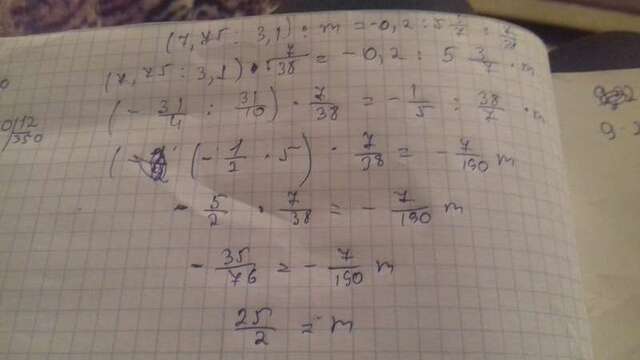 (7,75 : 3,1) : m = -0,2 : 5 3/7 : 7/38
(7,75 : 3,1) · 7/38 = -0,2 : 5 3/7 · m
(- 31/4 : 31/10) · 7/38 = - 1/5 : 38/7 · m
(- 1/2 · 5) · 7/38 = - 7/190 m
- 5/2 · 7/38 = - 7/190 m
- 35/76 = - 7/190 m
25/2 = m
12/350
9